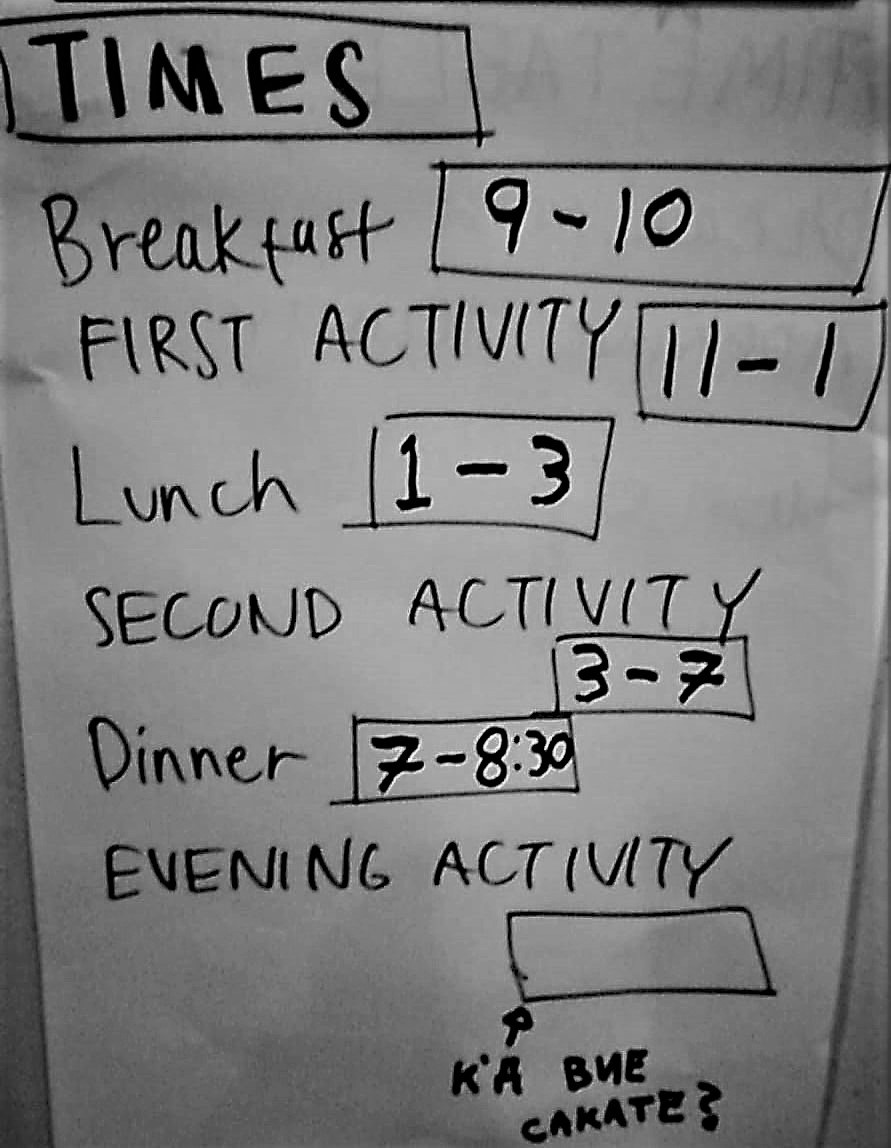 TIMES
Breakfast 9-10
FIRST ACTIVITY 11-1
Lunch 1-3
SECOND ACTIVITY
3-7
Dinner 7-8:30
EVENING ACTIVITY
К'Д ВИЕ
САКАТЕ?